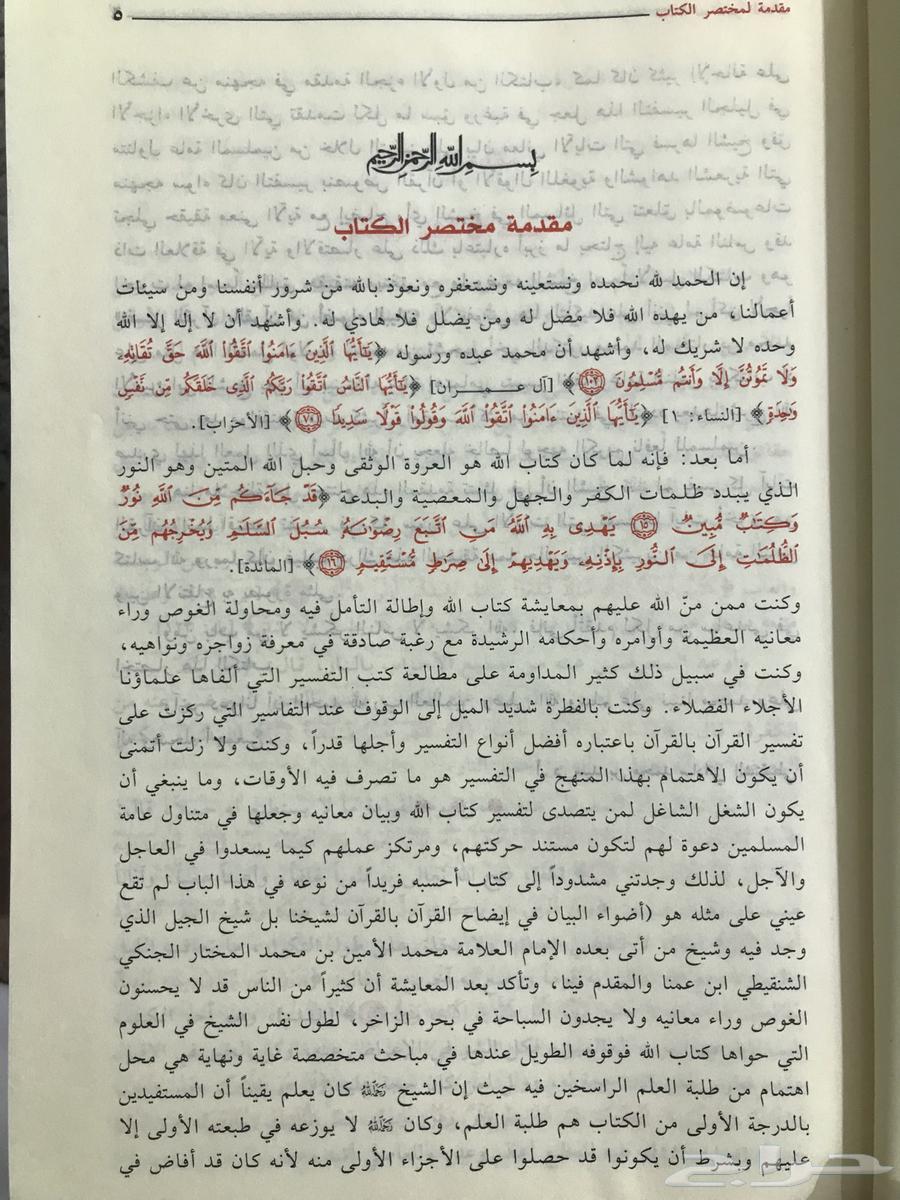 مقدمة لمختصر الكتاب ٥
بِسْمِ اللهِ الرَّحْمٰنِ الرَّحِيمِ
مقدمة مختصر الكتاب
إن الحمد لله نحمده ونستعينه ونستغفره ونعوذ بالله من شرور أنفسنا ومن سيئات
أعمالنا، من يهده الله فلا مضل له ومن يضلل فلا هادي له. وأشهد أن لا إله إلا الله
وحده لا شريك له، وأشهد أن محمد عبده ورسوله ﴿يَٰٓأَيُّهَا ٱلَّذِينَ ءَامَنُوا۟ ٱتَّقُوا۟ ٱللَّهَ حَقَّ تُقَاتِهِۦ
وَلَا تَمُوتُنَّ إِلَّا وَأَنتُم مُّسْلِمُونَ ١٠٢﴾ [آل عمـــران] ﴿يَٰٓأَيُّهَا ٱلنَّاسُ ٱتَّقُوا۟ رَبَّكُمُ ٱلَّذِى خَلَقَكُم مِّن نَّفْسٍ
وَٰحِدَةٍ﴾ [النساء: ١] ﴿يَٰٓأَيُّهَا ٱلَّذِينَ ءَامَنُوا۟ ٱتَّقُوا۟ ٱللَّهَ وَقُولُوا۟ قَوْلًا سَدِيدًا ٧٠﴾ [الأحزاب].
أما بعد: فإنه لما كان كتاب الله هو العروة الوثقى وحبل الله المتين وهو النور
الذي يبدد ظلمات الكفر والجهل والمعصية والبدعة ﴿قَدْ جَآءَكُم مِّنَ ٱللَّهِ نُورٌ
وَكِتَٰبٌ مُّبِينٌ ١٥ يَهْدِى بِهِ ٱللَّهُ مَنِ ٱتَّبَعَ رِضْوَٰنَهُۥ سُبُلَ ٱلسَّلَٰمِ وَيُخْرِجُهُم مِّنَ
ٱلظُّلُمَٰتِ إِلَى ٱلنُّورِ بِإِذْنِهِۦ وَيَهْدِيهِمْ إِلَىٰ صِرَٰطٍ مُّسْتَقِيمٍ ١٦﴾ [المائدة].
وكنت ممن منّ الله عليهم بمعايشة كتاب الله وإطالة التأمل فيه ومحاولة الغوص وراء
معانيه العظيمة وأوامره وأحكامه الرشيدة مع رغبة صادقة في معرفة زواجره ونواهيه،
وكنت في سبيل ذلك كثير المداومة على مطالعة كتب التفسير التي ألفاها علماؤنا
الأجلاء الفضلاء. وكنت بالفطرة شديد الميل إلى الوقوف عند التفاسير التي ركزت على
تفسير القرآن بالقرآن باعتباره أفضل أنواع التفسير وأجلها قدراً، وكنت ولا زلت أتمنى
أن يكون الاهتمام بهذا المنهج في التفسير هو ما تصرف فيه الأوقات، وما ينبغي أن
يكون الشغل الشاغل لمن يتصدى لتفسير كتاب الله وبيان معانيه وجعلها في متناول عامة
المسلمين دعوة لهم لتكون مستند حركتهم، ومرتكز عملهم كيما يسعدوا في العاجل
والآجل، لذلك وجدتني مشدوداً إلى كتاب أحسبه فريداً من نوعه في هذا الباب لم تقع
عيني على مثله هو (أضواء البيان في إيضاح القرآن بالقرآن لشيخنا بل شيخ الجيل الذي
وجد فيه وشيخ من أتى بعده الإمام العلامة محمد الأمين بن محمد المختار الجنكي
الشنقيطي ابن عمنا والمقدم فينا، وتأكد بعد المعايشة أن كثيراً من الناس قد لا يحسنون
الغوص وراء معانيه ولا يجدون السباحة في بحره الزاخر، لطول نفس الشيخ في العلوم
التي حواها كتاب الله فوقوفه الطويل عندها في مباحث متخصصة غاية ونهاية هي محل
اهتمام من طلبة العلم الراسخين فيه حيث إن الشيخ رحمه الله كان يعلم يقيناً أن المستفيدين
بالدرجة الأولى من الكتاب هم طلبة العلم، وكان رحمه الله لا يوزعه في طبعته الأولى إلا
عليهم وبشرط أن يكونوا قد حصلوا على الأجزاء الأولى منه لأنه كان قد أفاض في
حراج